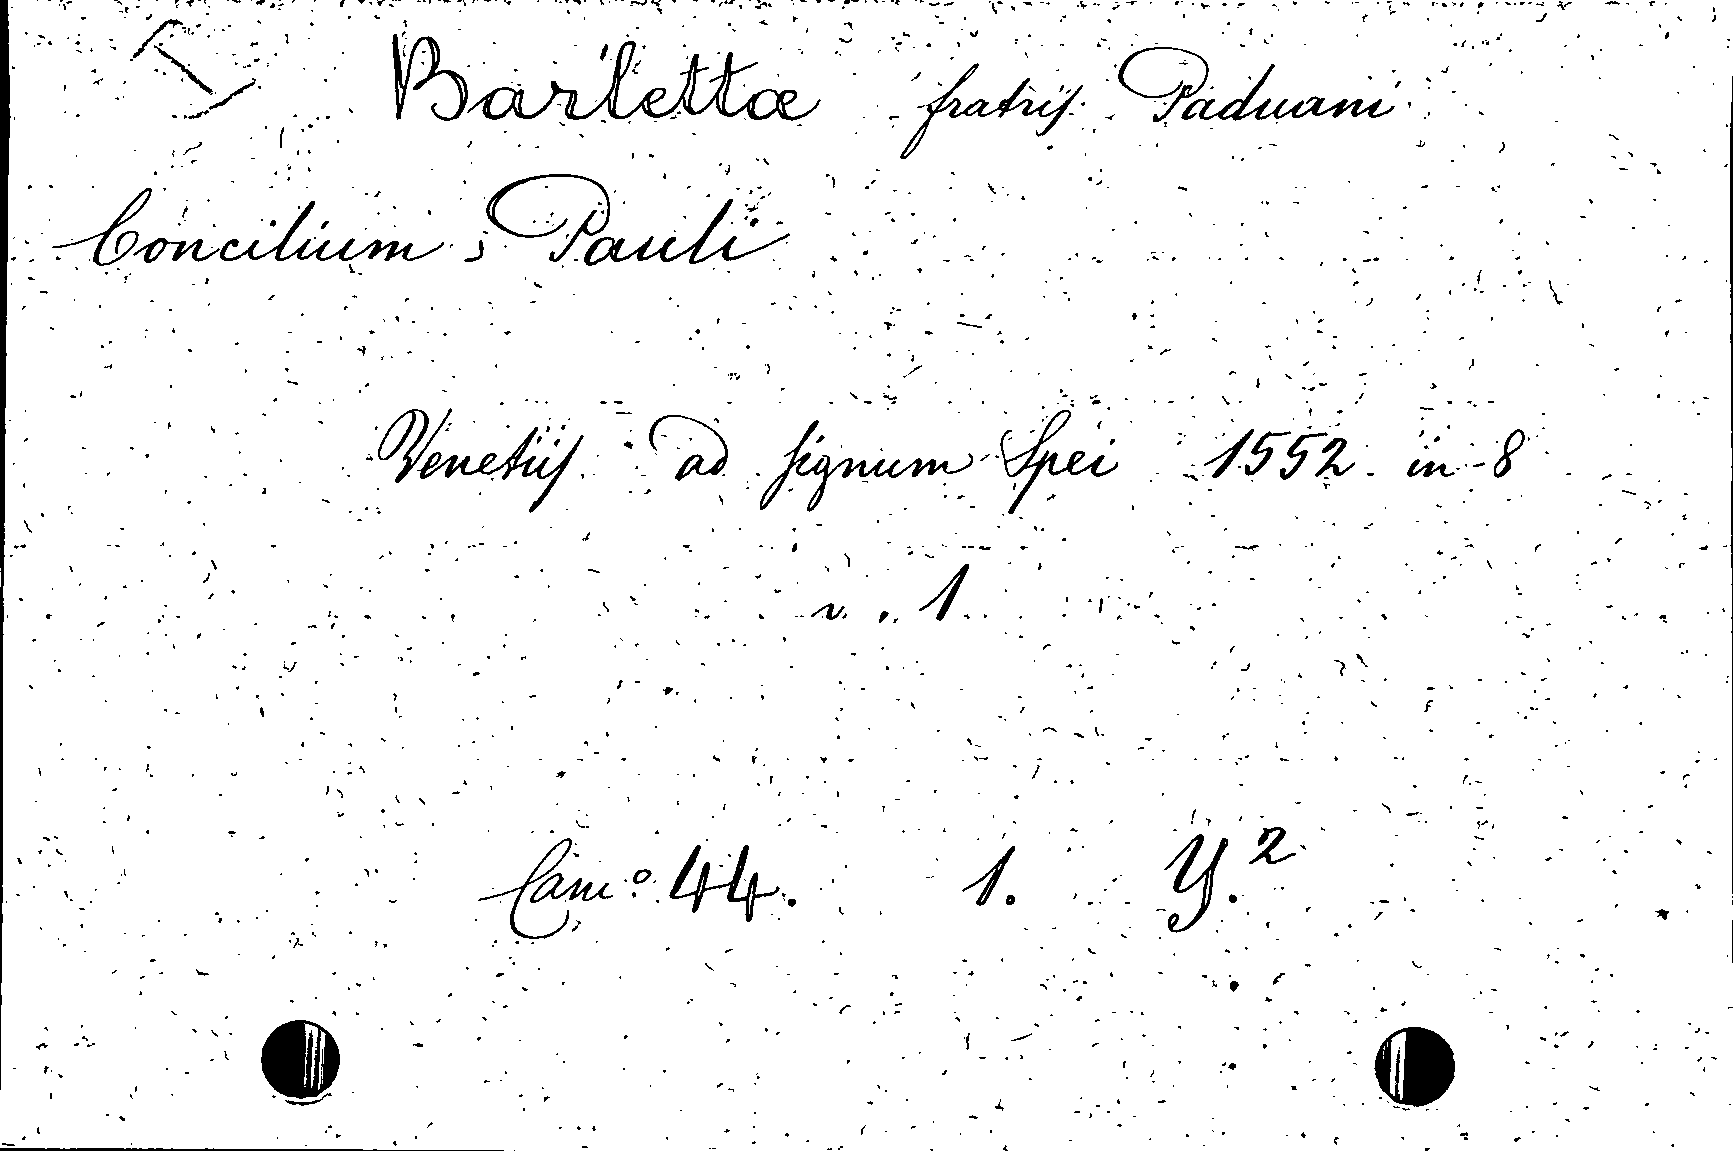 I Barlettæ fratris Paduani
Concilium s Pauli
Venetiis ad signum Spei 1552 in-8
v. 1
Cam° 44. 1. Y.2